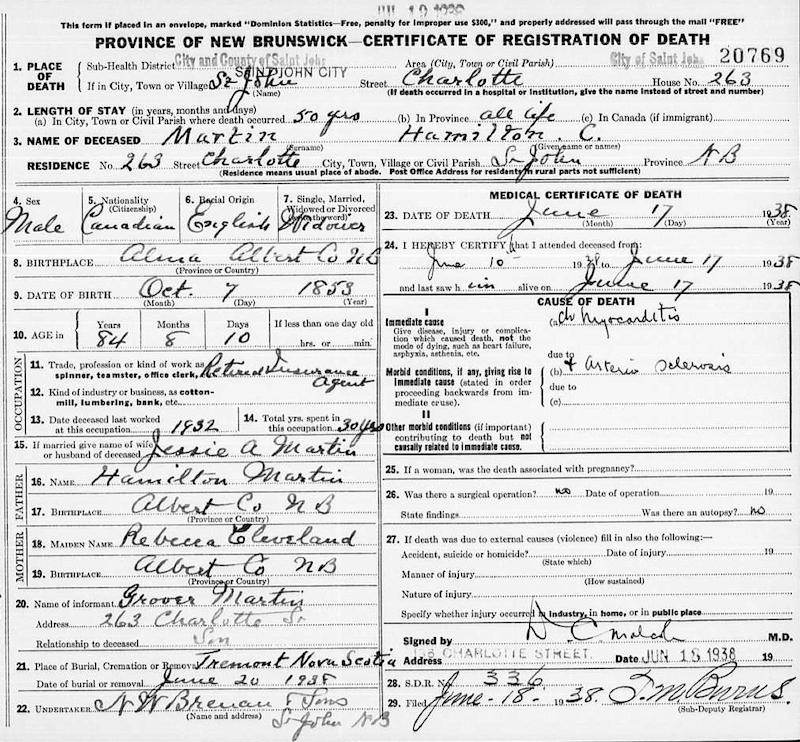 JUL 19 1938
This form if placed in an envelope, marked "Dominion Statistics—Free, penalty for improper use $300," and properly addressed will pass through the mail "FREE"
PROVINCE OF NEW BRUNSWICK—CERTIFICATE OF REGISTRATION OF DEATH
20769
1. PLACE OF DEATH
Sub-Health District City and County of Saint John Area (Town or Civil Parish) City of Saint John
SAINT JOHN CITY
If in City, Town or Village St John (Name) Street Charlotte House No. 263
(If death occurred in a hospital or institution, give the name instead of street and number)
2. LENGTH OF STAY (in years, months and days)
(a) In City, Town or Civil Parish where death occurred 50 yrs (b) In Province all life (c) In Canada (if immigrant)
3. NAME OF DECEASED Martin Hamilton C.
(Surname) (Given name or names)
RESIDENCE No. 263 Street Charlotte City, Town, Village or Civil Parish St John Province N B
(Residence means usual place of abode. Post Office Address for residents in rural parts not sufficient)
4. Sex Male
5. Nationality (Citizenship) Canadian
6. Racial Origin English
7. Single, Married, Widowed or Divorced (write the word) Widower
8. BIRTHPLACE Alma Albert Co N B
(Province or Country)
9. DATE OF BIRTH Oct. 7 1853
(Month) (Day) (Year)
10. AGE in Years 84 Months 8 Days 10 If less than one day old hrs. or min.
OCCUPATION
11. Trade, profession or kind of work as spinner, teamster, office clerk, Retired Insurance Agent
12. Kind of industry or business, as cotton-mill, lumbering, bank, etc.
13. Date deceased last worked at this occupation 1932
14. Total yrs. spent in this occupation 30 yrs
15. If married give name of wife or husband of deceased Jessie A Martin
FATHER
16. NAME Hamilton Martin
17. BIRTHPLACE Albert Co N B
(Province or Country)
MOTHER
18. MAIDEN NAME Rebecca Cleveland
19. BIRTHPLACE Albert Co N B
(Province or Country)
20. Name of informant Grover Martin
Address 263 Charlotte St
Relationship to deceased Son
21. Place of Burial, Cremation or Removal Tremont Nova Scotia
Date of burial or removal June 20 1938
22. UNDERTAKER N W Brenan & Sons
(Name and address) St John N B
MEDICAL CERTIFICATE OF DEATH
23. DATE OF DEATH June 17 1938
(Month) (Day) (Year)
24. I HEREBY CERTIFY that I attended deceased from:
June 10th 1938 to June 17 1938
and last saw him alive on June 17 1938
CAUSE OF DEATH
I
Immediate cause (a) Ch Myocarditis
Give disease, injury or complication which caused death, not the mode of dying, such as heart failure, asphyxia, asthenia, etc.
due to
(b) + Arterio sclerosis
Morbid conditions, if any, giving rise to immediate cause (stated in order proceeding backwards from immediate cause).
due to
(c)
II
Other morbid conditions (if important) contributing to death but not causally related to immediate cause.
25. If a woman, was the death associated with pregnancy?
26. Was there a surgical operation? no Date of operation 19
State findings Was there an autopsy? no
27. If death was due to external causes (violence) fill in also the following:—
Accident, suicide or homicide? Date of injury 19
(State which)
Manner of injury
(How sustained)
Nature of injury
Specify whether injury occurred in industry, in home, or in public place
Signed by D C Malcolm M.D.
Address 138 CHARLOTTE STREET. Date JUN 18 1938 19
28. S.D.R. No. 336
29. Filed June - 18 - 1938. T. M. Burns.
(Sub-Deputy Registrar)